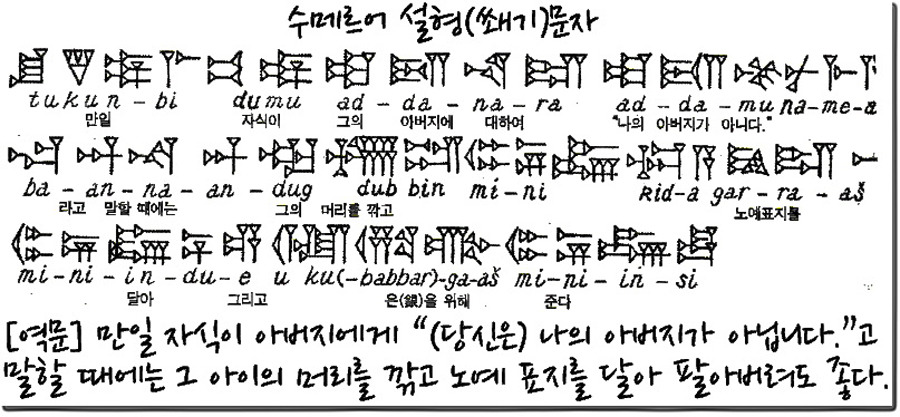 수메르어 설형(쐐기)문자
tukun - bi dumu ad - da - na - ra ad - da - mu na-me-a
만일 자식이 그의 아버지에 대하여 "나의 아버지가 아니다."
ba - an - na - an - dug dub bin mi - ni Rid-a gar - ra - aš
라고 말할 때에는 그의 머리를 깎고 노예표지를
mi - ni - in - du - e u ku(-babbar)-ga-aš mi - ni - in - si
달아 그리고 은(銀)을 위해 준다
[역문] 만일 자식이 아버지에게 "(당신은) 나의 아버지가 아닙니다."고
말할 때에는 그 아이의 머리를 깎고 노예 표지를 달아 팔아버려도 좋다.